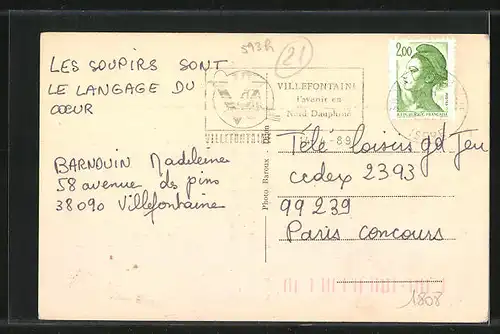 593R
21
LES SOUPIRS SONT
LE LANGAGE DU
CŒUR
BARNOUIN Madeleine
58 avenue des pins
38090 Villefontaine
VILLEFONTAINE
VILLEFONTAINE
l'avenir en
Nord Dauphiné
89
Photo Baroux - Dijon
2,00
REPUBLIQUE FRANÇAISE
ISERE
Télé loisirs gd Jeu
cedex 2393
99239
Paris Concours
1808